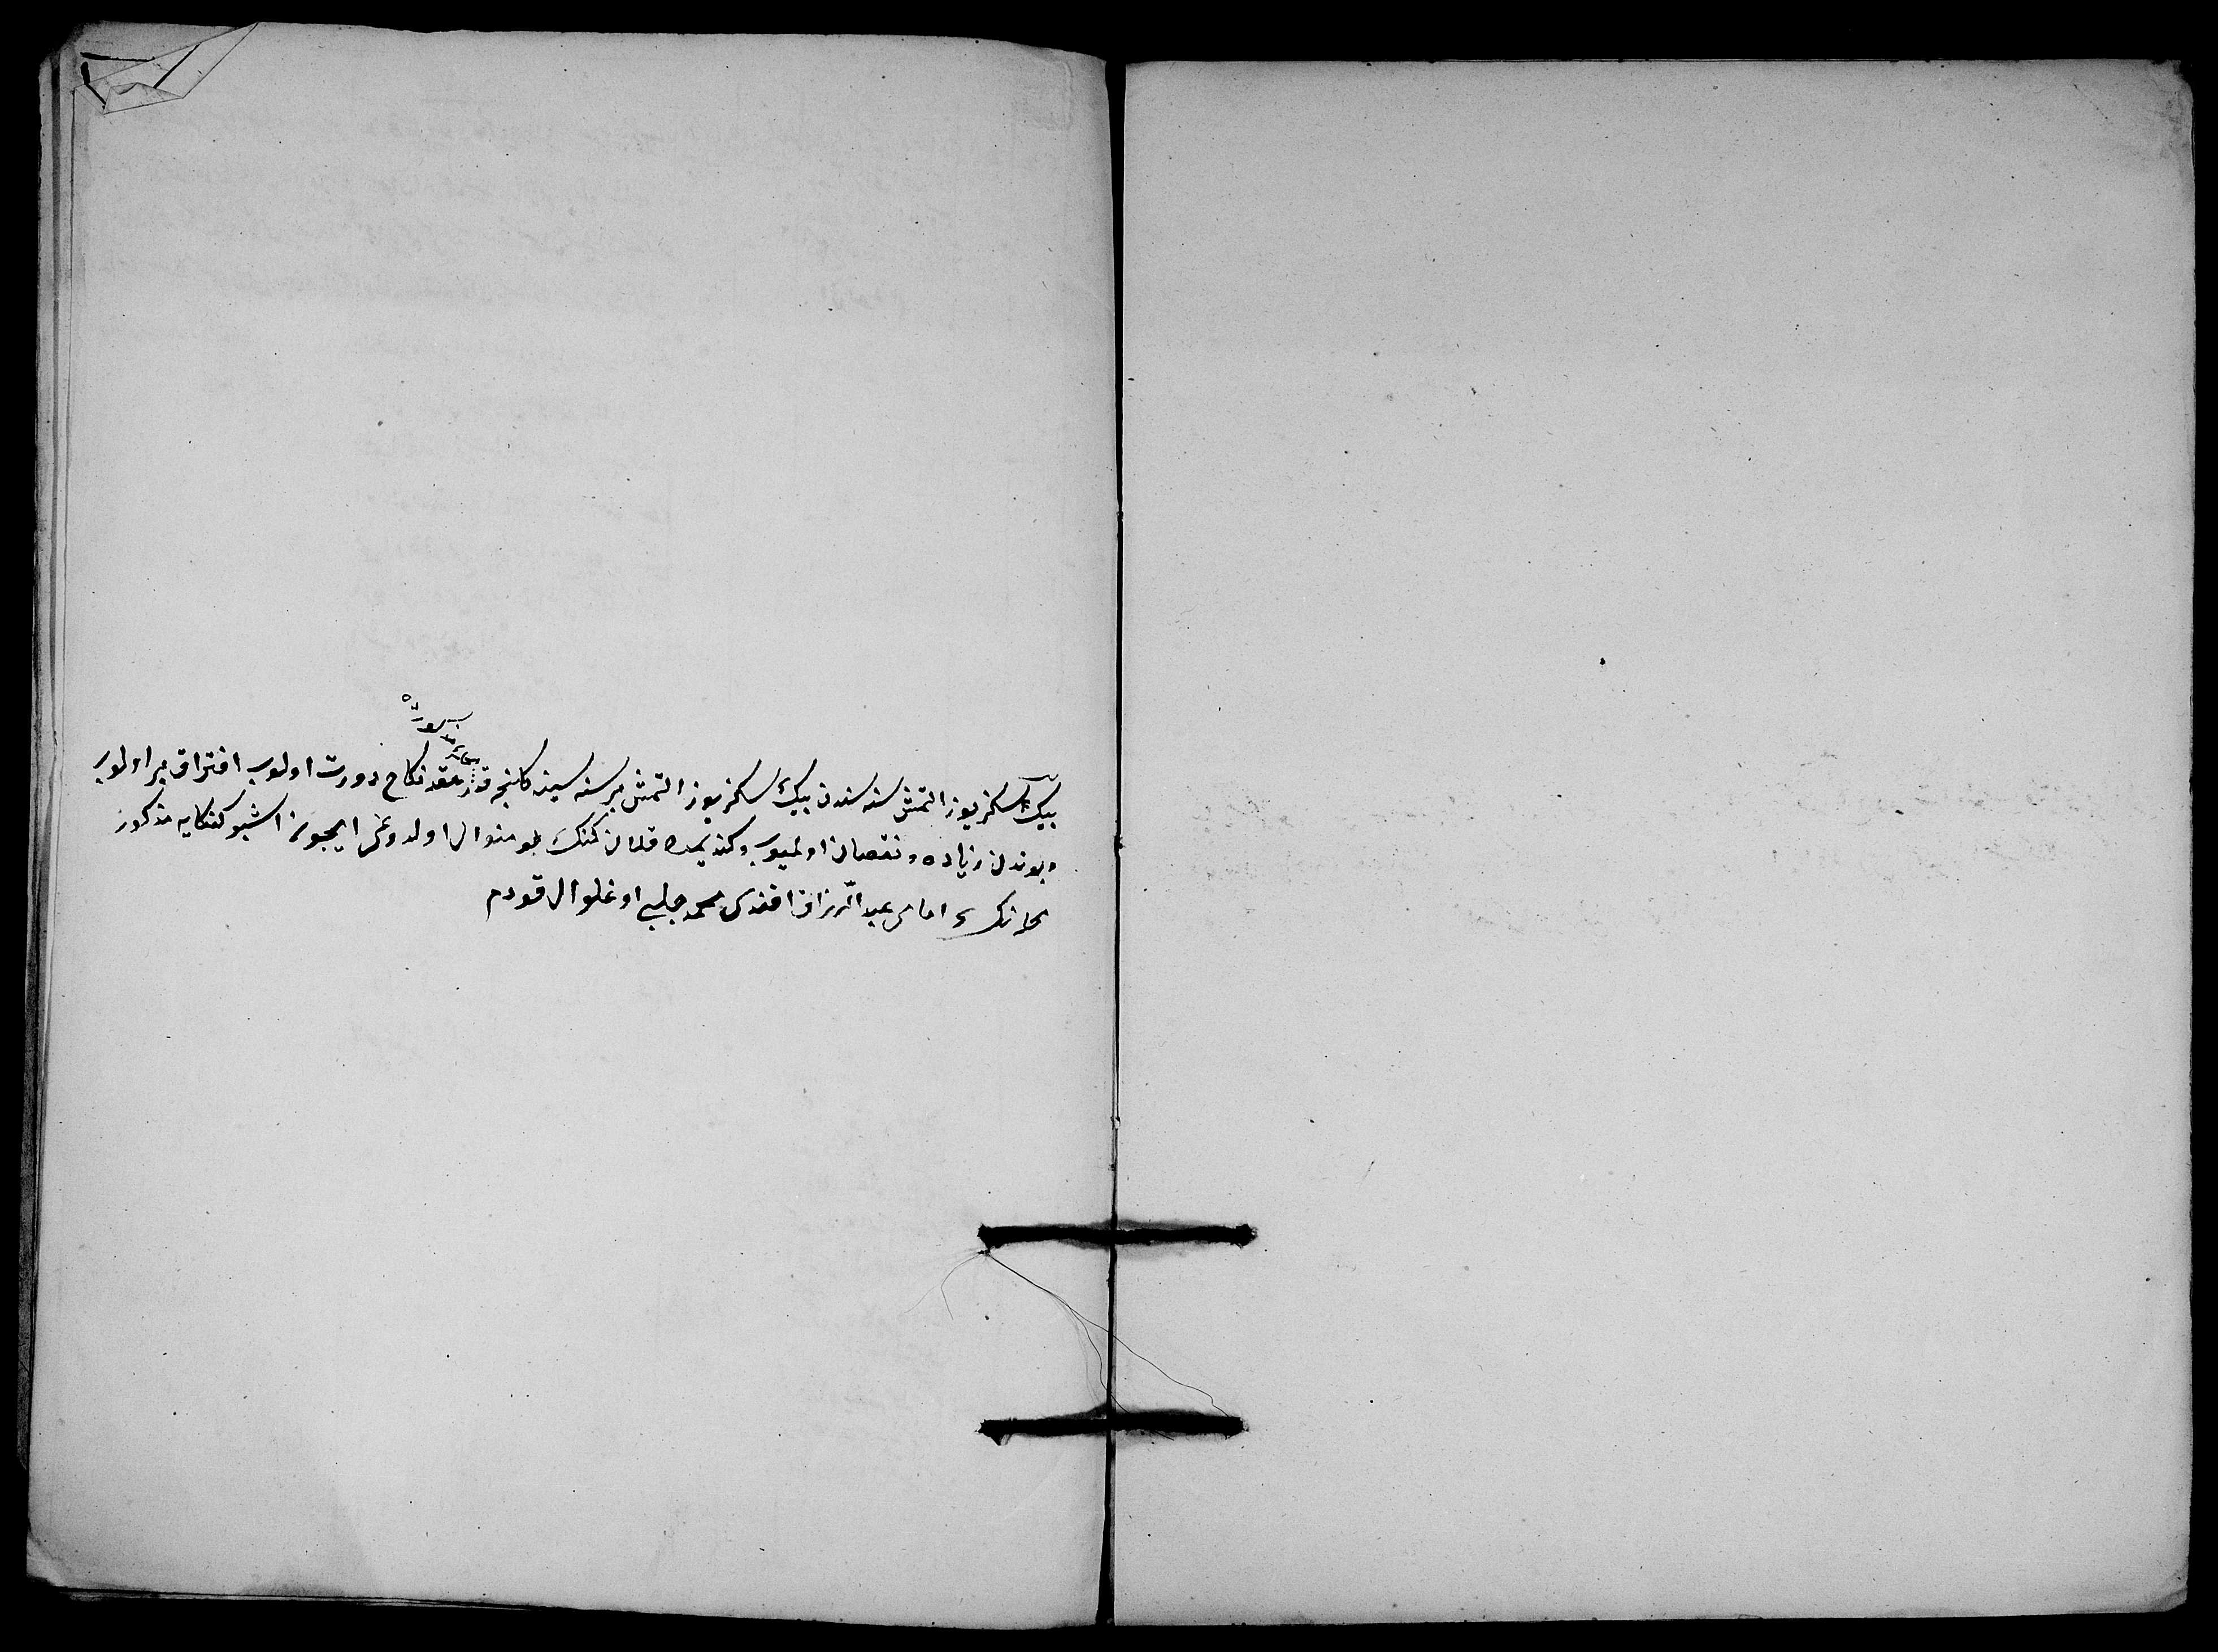 بیك سكز یوز التمش سنه سندن بیك سكز یوز التمش بر سنه سینه كلنجه قدر عقد نكاح دورت اولوب افتراق بر اولوب
وبوندن زیاده ونقصان اولمیوب وكندیمده قلان كنك بو منوال اولدوغی ایچون اشبو كنكایه مذكور
امامی عبد الرزاق افندی محمد چلبی اوغلو ال قودم